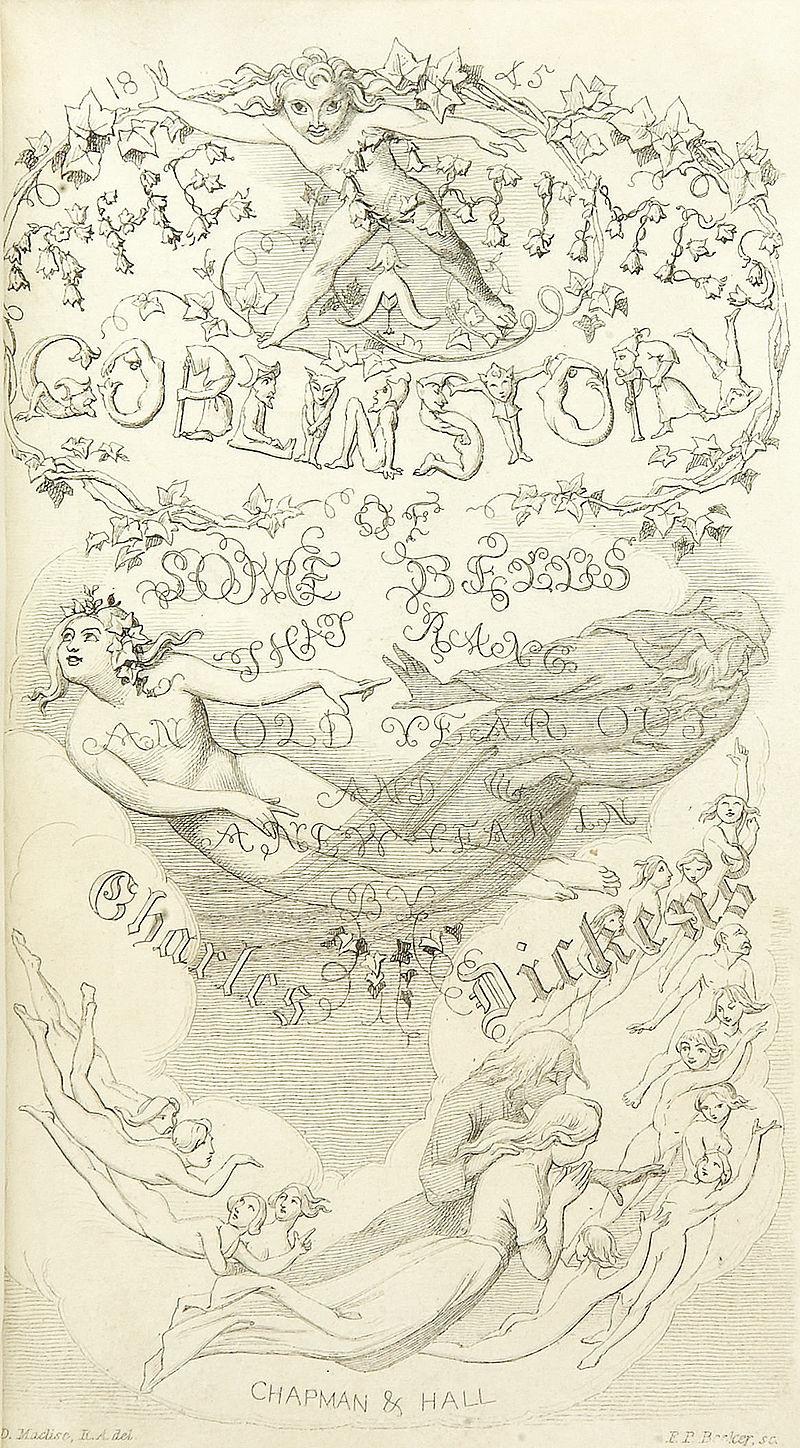 18 45
THE CHIMES
A
GOBLIN STORY
OF
SOME BELLS
THAT RANG
AN OLD YEAR OUT
AND
A NEW YEAR IN
BY
Charles Dickens
CHAPMAN & HALL
D. Maclise, R.A. del. F. P. Becker, sc.